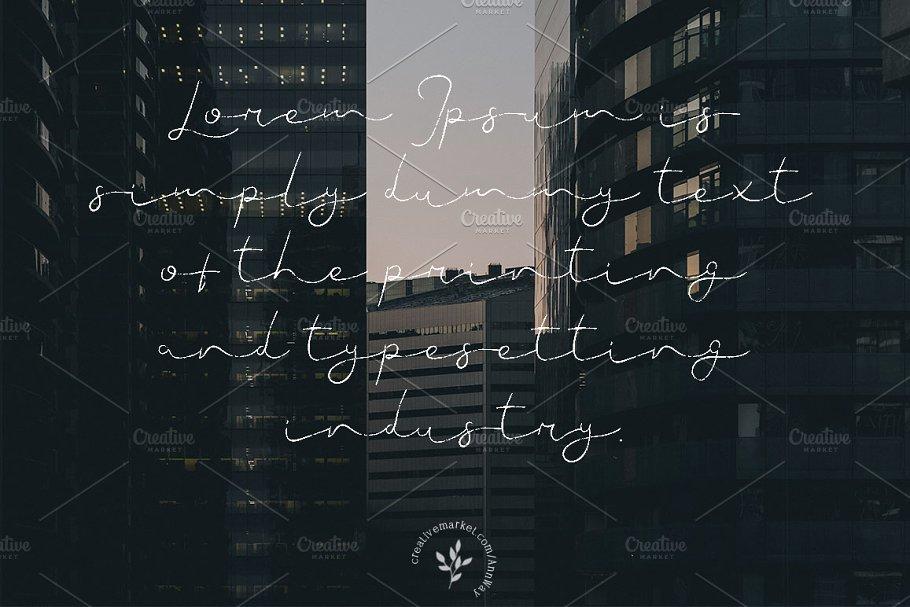 Lorem Ipsum is
simply dummy text
of the printing
and typesetting
industry.
creativemarket.com/AnnWay
Creative
MARKET